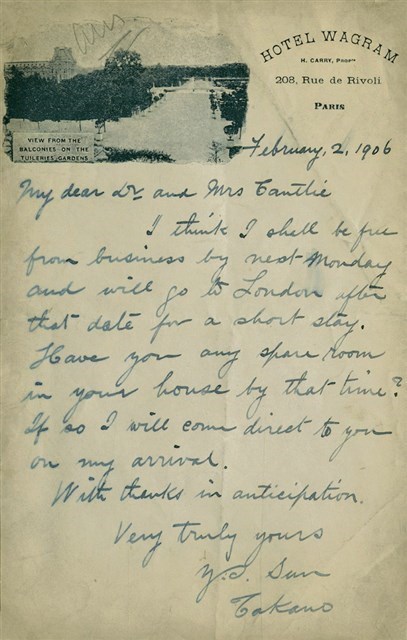 Ans.
HOTEL WAGRAM
H. CARRY, Propre
208, Rue de Rivoli
PARIS
VIEW FROM THE
BALCONIES ON THE
TUILERIES GARDENS
February, 2, 1906
My dear Dr. and Mrs Cantlie
I think I shell be free
from business by next Monday
and will go to London after
that date for a short stay.
Have you any spare room
in your house by that time?
If so I will come direct to you
on my arrival.
With thanks in anticipation.
Very truly yours
Y.S. Sun
Takano